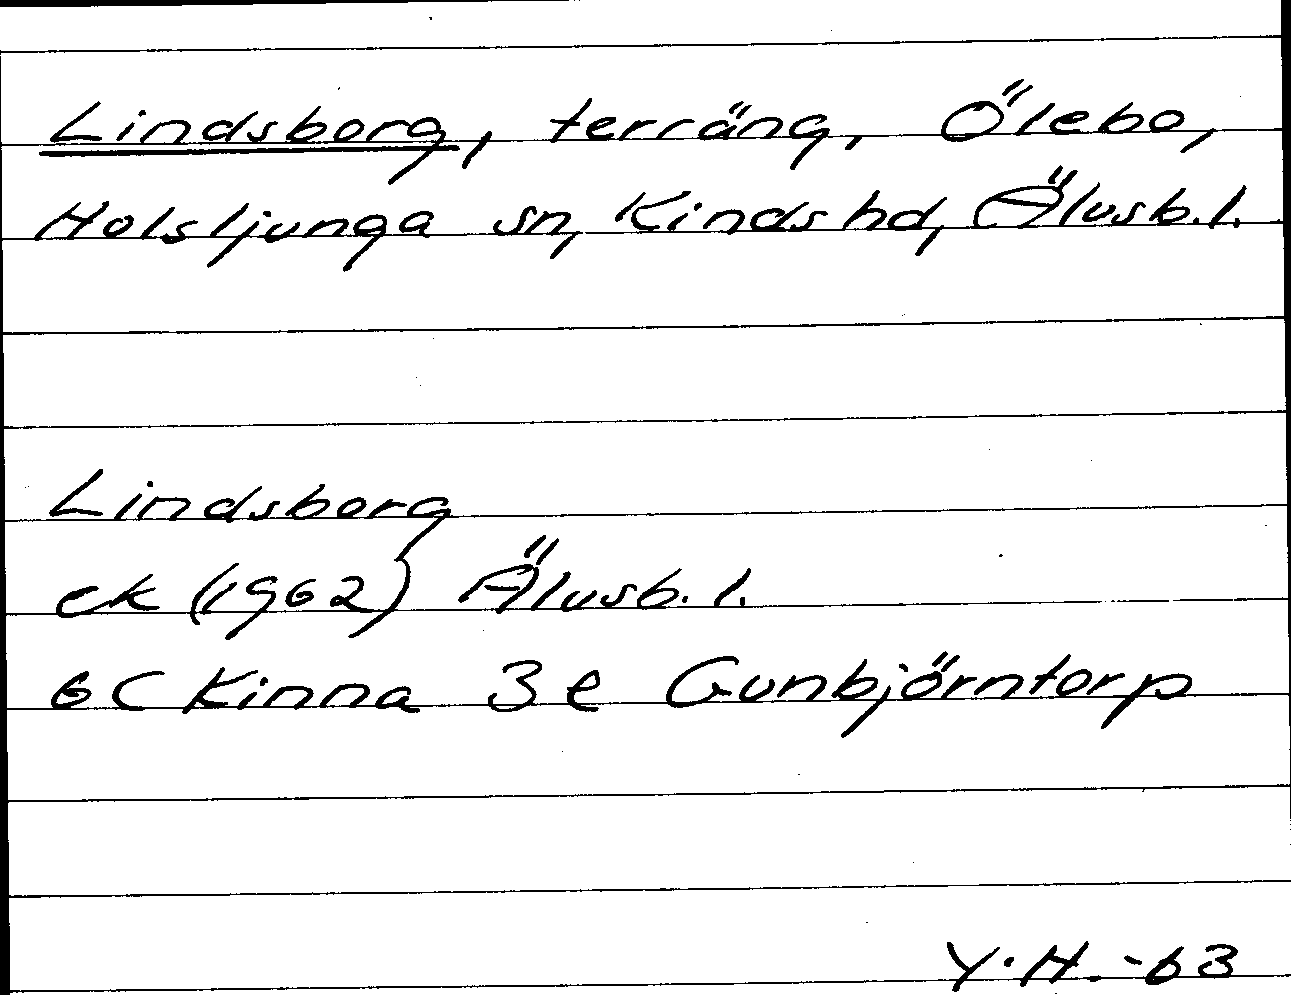 Lindsborg, terräng, Ölebo,
Holsljunga sn, Kinds hd, Älvsb. l.
Lindsborg
ek (1962) Älvsb. l.
6C Kinna 3e Gunbjörntorp
Y. H. -63